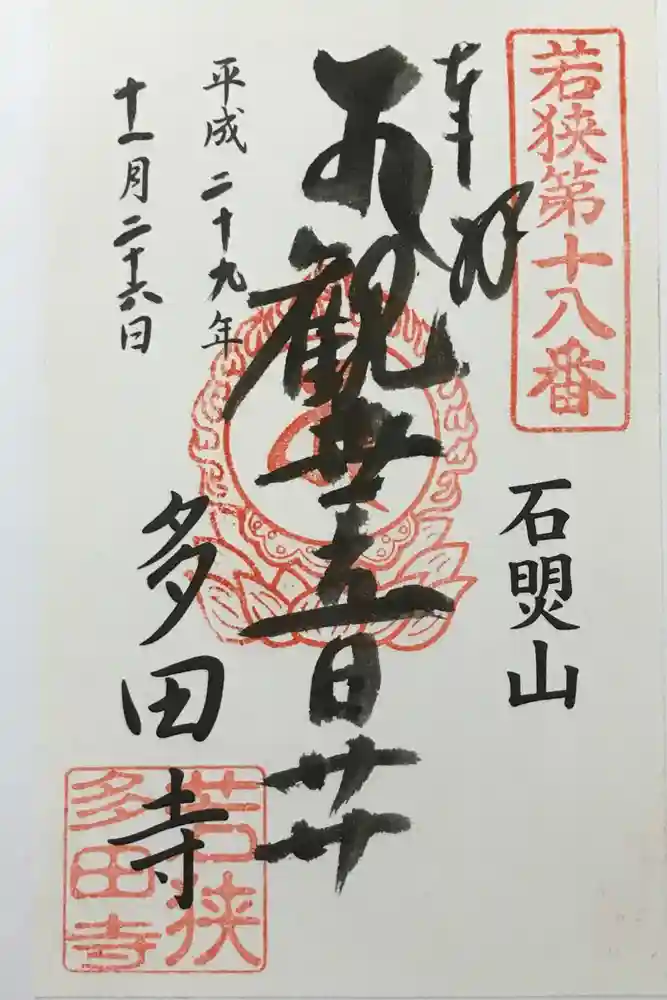 若狭第十八番
奉拝
観世音𦬇
平成二十九年
十一月二十六日
多田寺
若狭
多田寺